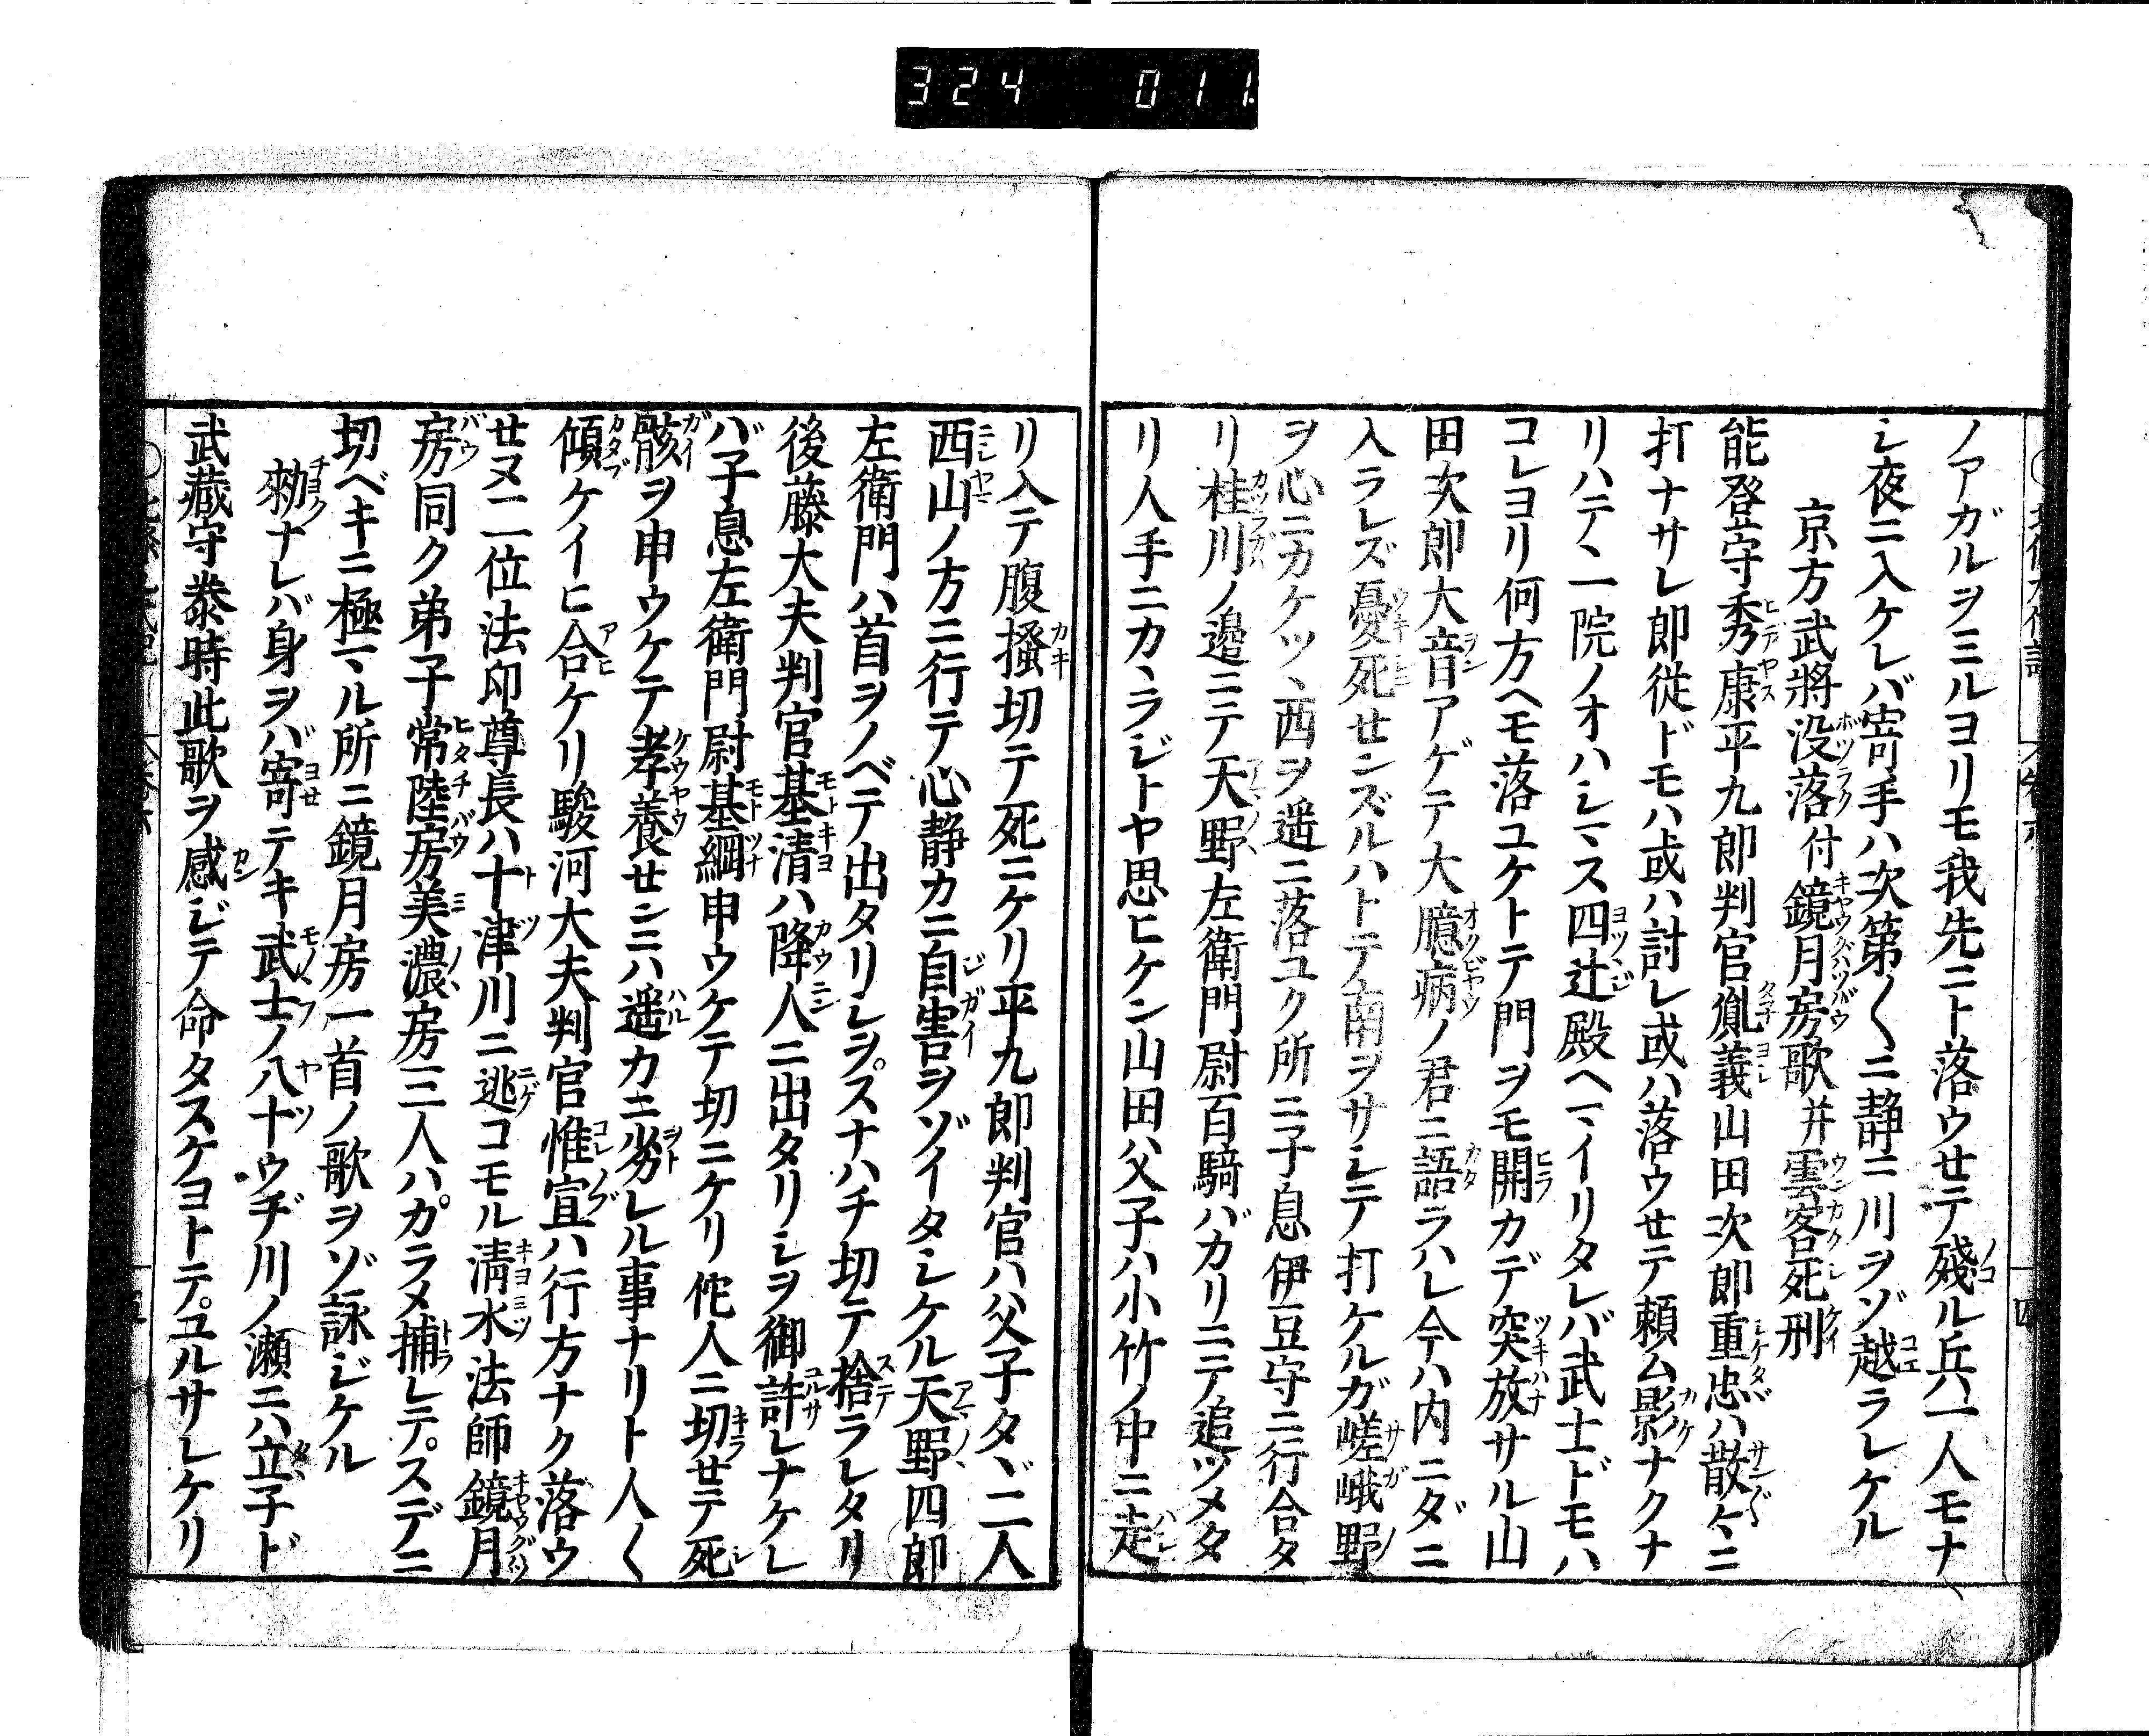 324 011
ノアガルヲミルヨリモ我先ニト落ウセテ殘ル兵一人モナ
シ夜ニ入ケレバ寄手ハ次第〱ニ静ニ川ヲゾ越ラレケル
京方武將没落付鏡月房歌并雲客死刑
能登守秀康平九郎判官胤義山田次郎重忠ハ散々ニ
打ナサレ郎従ドモハ或ハ討レ或ハ落ウセテ頼ム影ナクナ
リハテヽ一院ノオハシマス四辻殿ヘマイリタレバ武士ドモハ
コレヨリ何方ヘモ落ユケトテ門ヲモ開カデ突放サル山
田次郎大音アゲテ大臆病ノ君ニ語ラハレ今ハ内ニダニ
入ラレズ憂死センズルハトテ南ヲサシテ打ケルガ嵯峨野
ヲ心ニカケツヽ西ヲ遥ニ落ユク所ニ子息伊豆守ニ行合タ
リ桂川ノ邉ニテ天野左衛門尉百騎バカリニテ追ツメタ
リ人手ニカヽラジトヤ思ヒケン山田父子ハ小竹ノ中ニ走
リ入テ腹搔切テ死ニケリ平九郎判官ハ父子タヾ二人
西山ノ方ニ行テ心静カニ自害ヲゾイタシケル天野四郎
左衛門ハ首ヲノベテ出タリシヲスナハチ切テ捨ラレタリ
後藤大夫判官基清ハ降人ニ出タリシヲ御許レナケレ
バ子息左衛門尉基綱申ウケテ切ニケリ佗人ニ切セテ死
骸ヲ申ウケテ孝養センニハ遥カニ劣レル事ナリト人〱
傾ケイヒ合ケリ駿河大夫判官惟宣ハ行方ナク落ウ
セヌ二位法印尊長ハ十津川ニ逃コモル淸水法師鏡月
房同ク弟子常陸房美濃房三人ハカラメ捕レテスデニ
切ベキニ極マル所ニ鏡月房一首ノ歌ヲゾ詠ジケル
勅ナレバ身ヲバ寄テキ武士ノ八十ウヂ川ノ瀬ニハ立子ド
武藏守泰時此歌ヲ感ジテ命タスケヨトテユルサレケリ